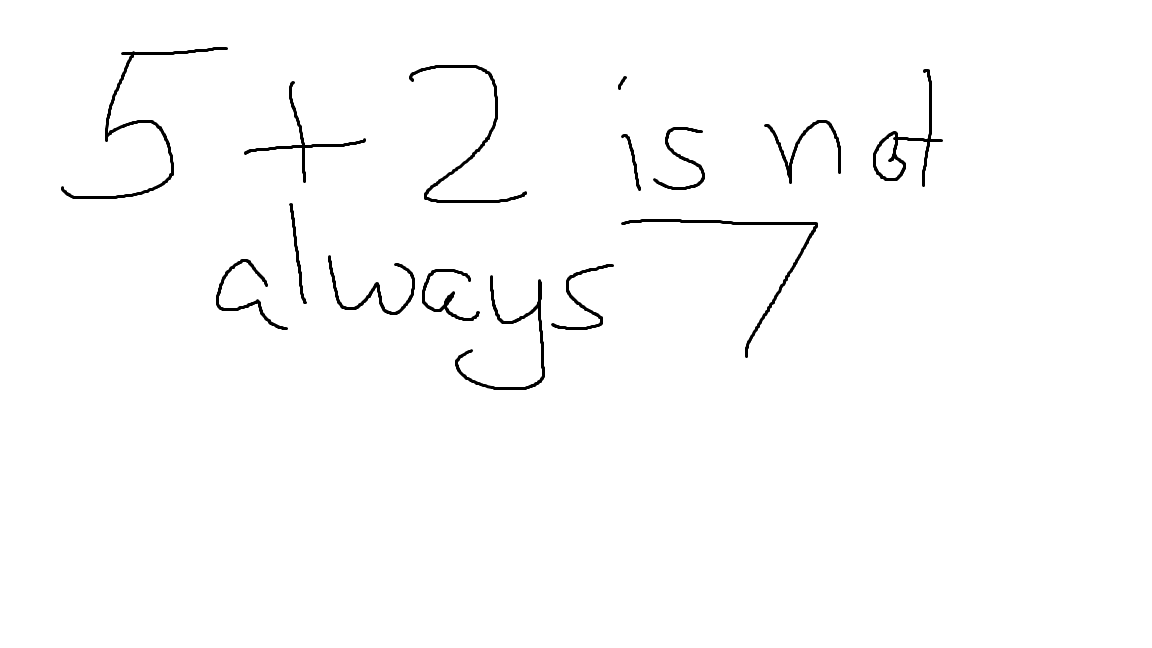 5+2 is not
always 7